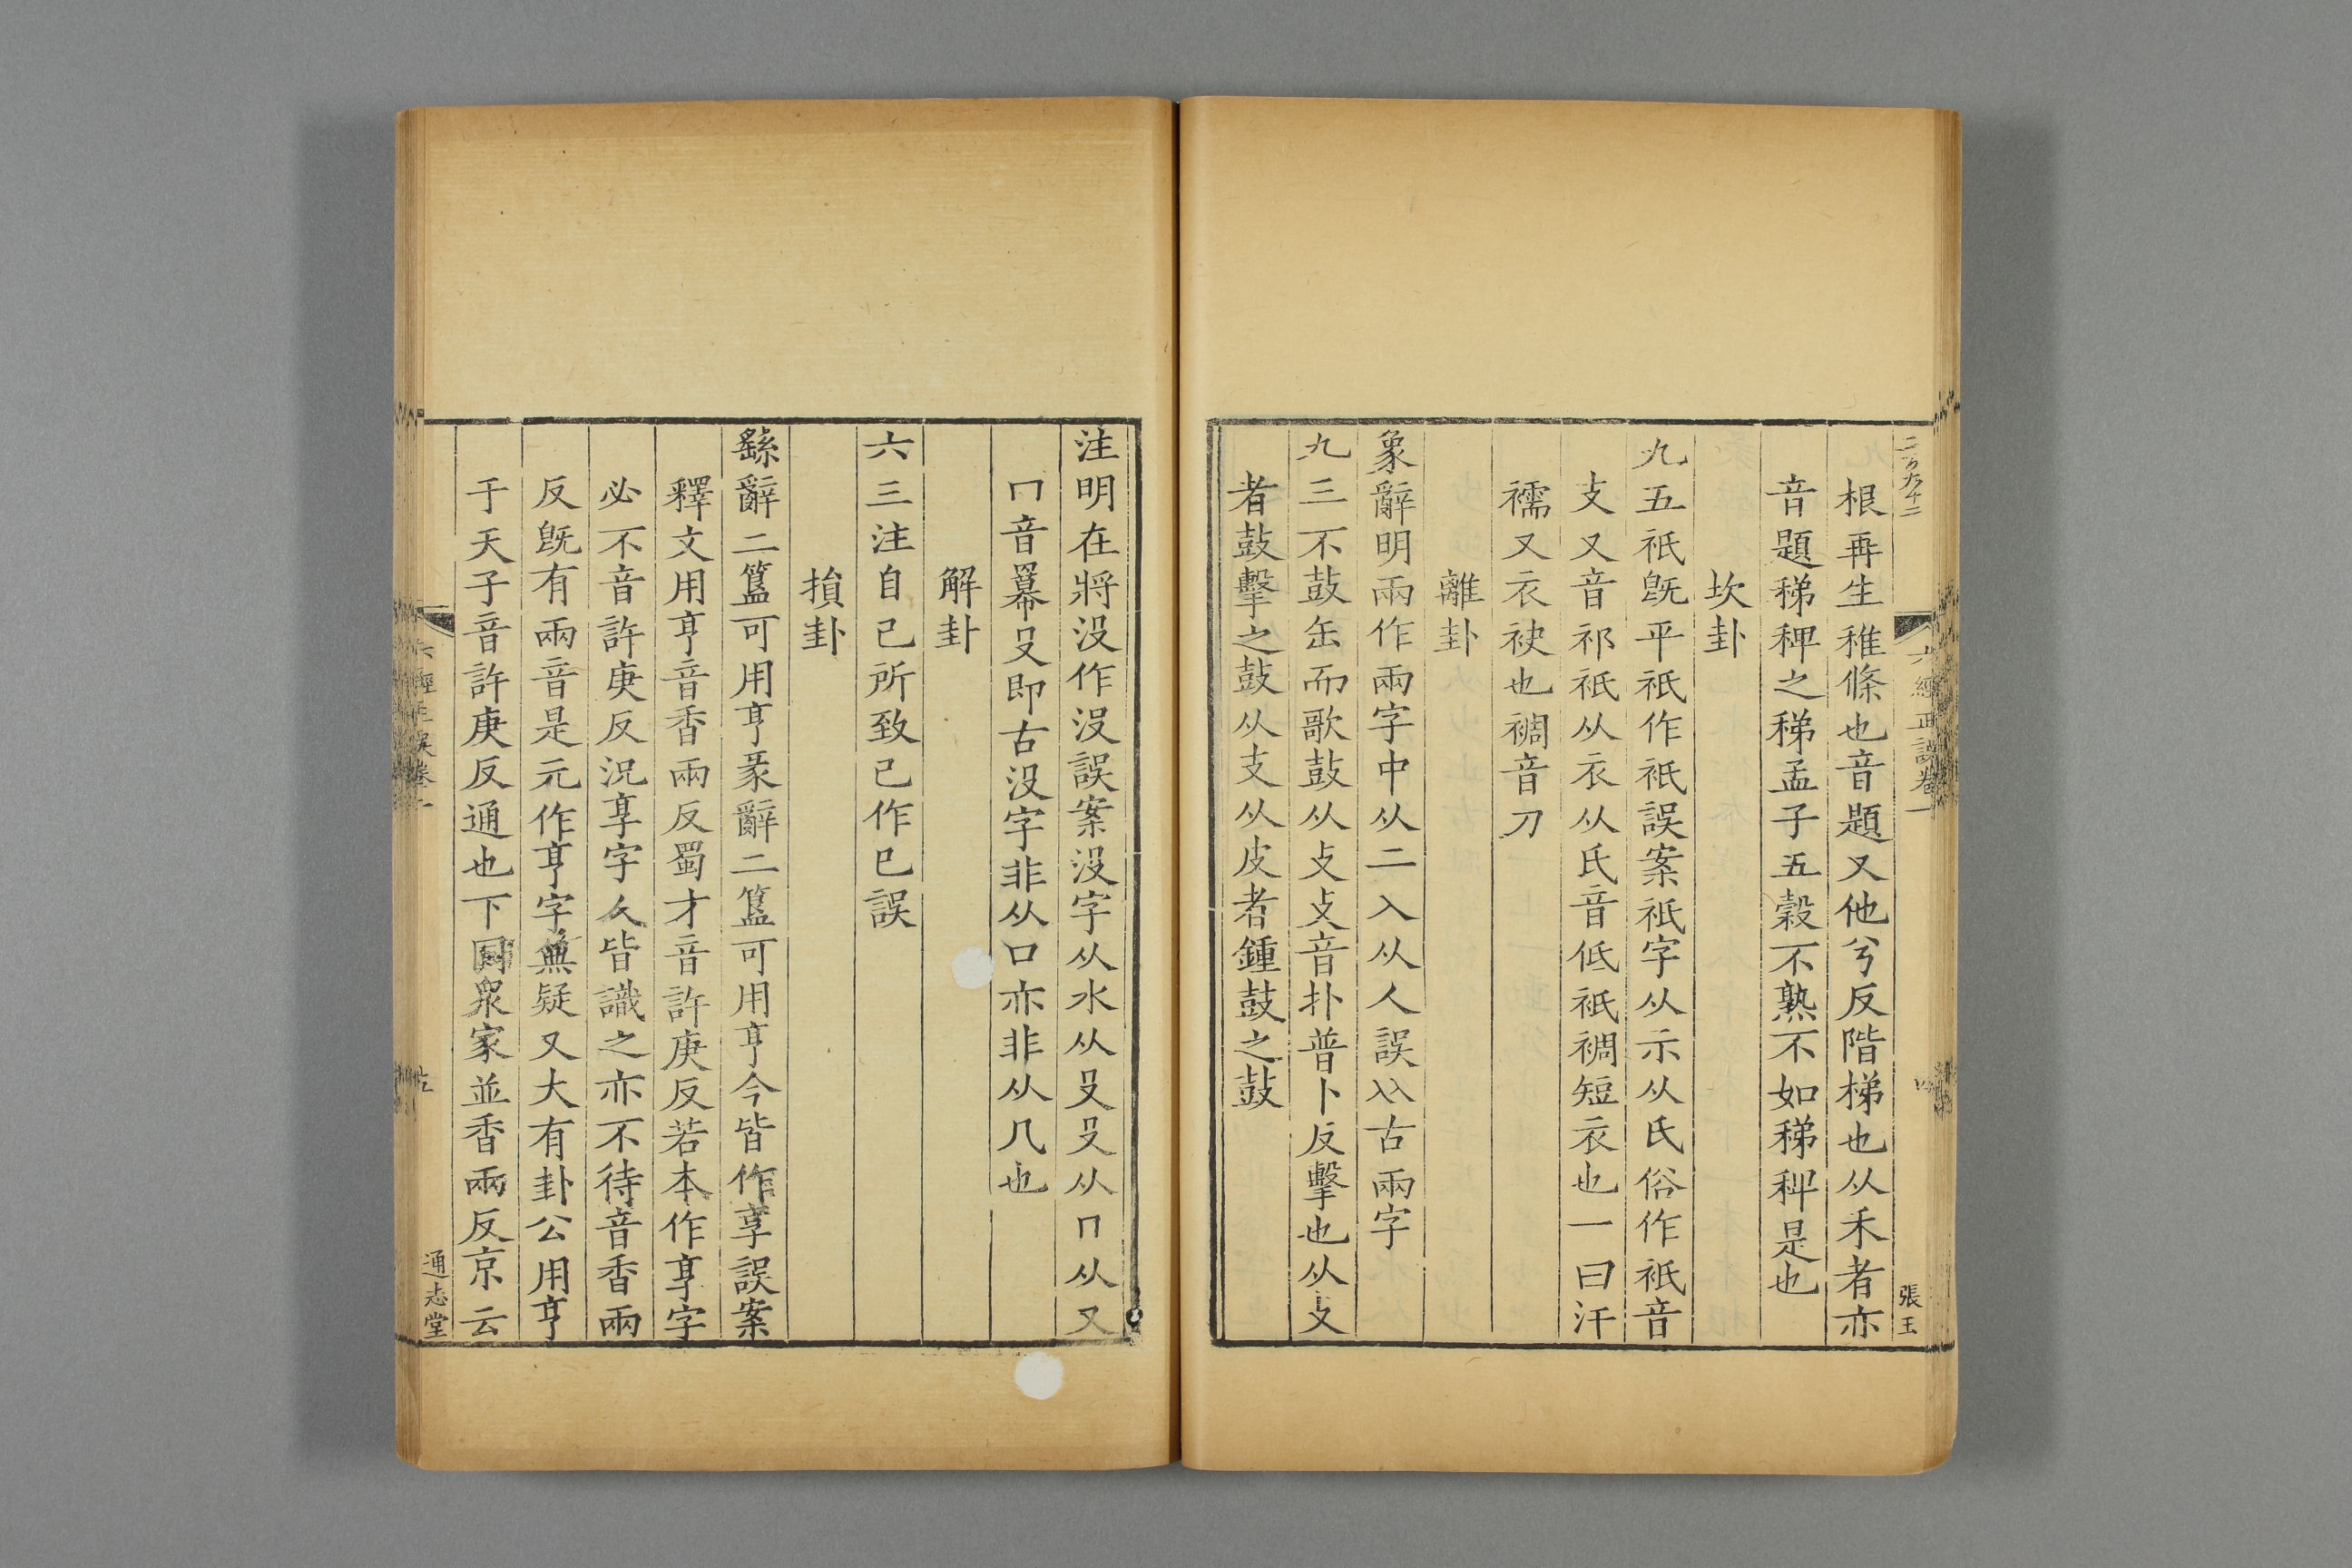 二百九十二
六經正誤卷一
四
張玉
根再生稚條也音題又他兮反階梯也从禾者亦
音題稊稗之稊孟子五穀不熟不如稊稗是也
坎卦
九五祇旣平祇作祗誤案祇字从示从氏俗作祗音
支又音祁祇从衣从氏音低袛裯短衣也一曰汗
襦又衣袂也裯音刀
離卦
象辭明兩作兩字中从二入从人誤㒳古兩字
九三不鼓缶而歌鼓从攴攴音扑普卜反擊也从支
者鼓擊之鼓从支从皮者鍾鼓之鼓
注明在將没作没誤案没字从水从𠬛𠬛从冂从又
冂音冪𠬛即古没字非从口亦非从几也
解卦
六三注自己所致己作巳誤
損卦
繇辭二簋可用亨彖辭二簋可用亨今皆作享誤案
釋文用亨音香兩反蜀才音許庚反若本作享字
必不音許庚反況享字人皆識之亦不待音香兩
反旣有兩音是元作亨字無疑又大有卦公用亨
于天子音許庚反通也下同衆家並香兩反京云
六經正誤卷一
五
通志堂